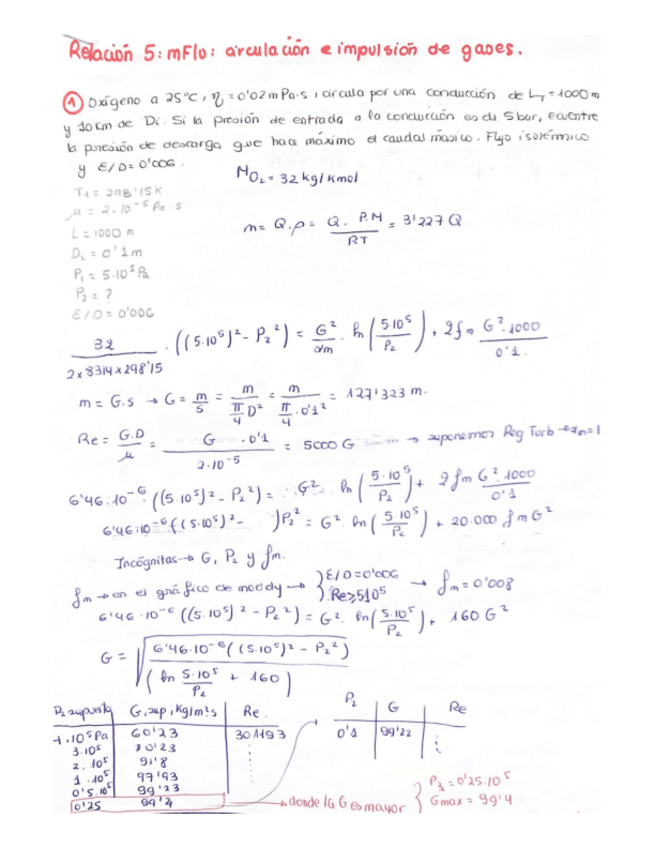 Relación 5: mFlo: circulación e impulsión de gases.
① Oxígeno a 25°C, η = 0'02 mPa·s, circula por una conducción de L_T = 1000 m
y 10 cm de Di. Si la presión de entrada a la conducción es de 5 bar, encuentre
la presión de descarga que hace máximo el caudal másico. Flujo isotérmico
y E/D = 0'006.
M_O₂ = 32 kg/kmol
T₁ = 298'15 K
μ = 2·10⁻⁵ Pa·s
m = Q·ρ = Q · P.M / RT = 3'227 Q
L = 1000 m
D_i = 0'1 m
P₁ = 5·10⁵ Pa
P₂ = ?
E/D = 0'006
32 / 2×8314×298'15 · ((5·10⁵)² - P₂²) = G²/αm · ln (5·10⁵ / P₂) + 2fm G²·1000 / 0'1.
m = G·S → G = m/S = m / π/4 D² = m / π/4 · 0'1² = 127'323 m.
Re = G·D / μ = G · 0'1 / 2·10⁻⁵ = 5000 G → suponemos Reg Turb → αm = 1
6'46·10⁻⁶ · ((5·10⁵)² - P₂²) = G² ln (5·10⁵ / P₂) + 2 fm G²·1000 / 0'1
6'46·10⁻⁶ ((5·10⁵)² - )P₂² = G² · ln (5·10⁵ / P₂) + 20.000 fm G²
Incógnitas → G, P₂ y fm.
fm → en el gráfico de moody → } E/D = 0'006 Re ≥ 5·10⁵ → fm = 0'008
6'46·10⁻⁶ ((5·10⁵)² - P₂²) = G² · ln (5·10⁵ / P₂) + 160 G²
G = √ 6'46·10⁻⁶ ((5·10⁵)² - P₂²) / (ln 5·10⁵ / P₂ + 160)
P₂ supuesta G, sup, kg/m²s Re.
60'23 301193
3·10⁵
2·10⁵ 91'8
1·10⁵ 97'93
0'5·10⁵ 99'23
0'25 99'4
P₂ G Re
0'1 99'22
→ donde la G es mayor
0'25·10⁵
Gmax = 99'4